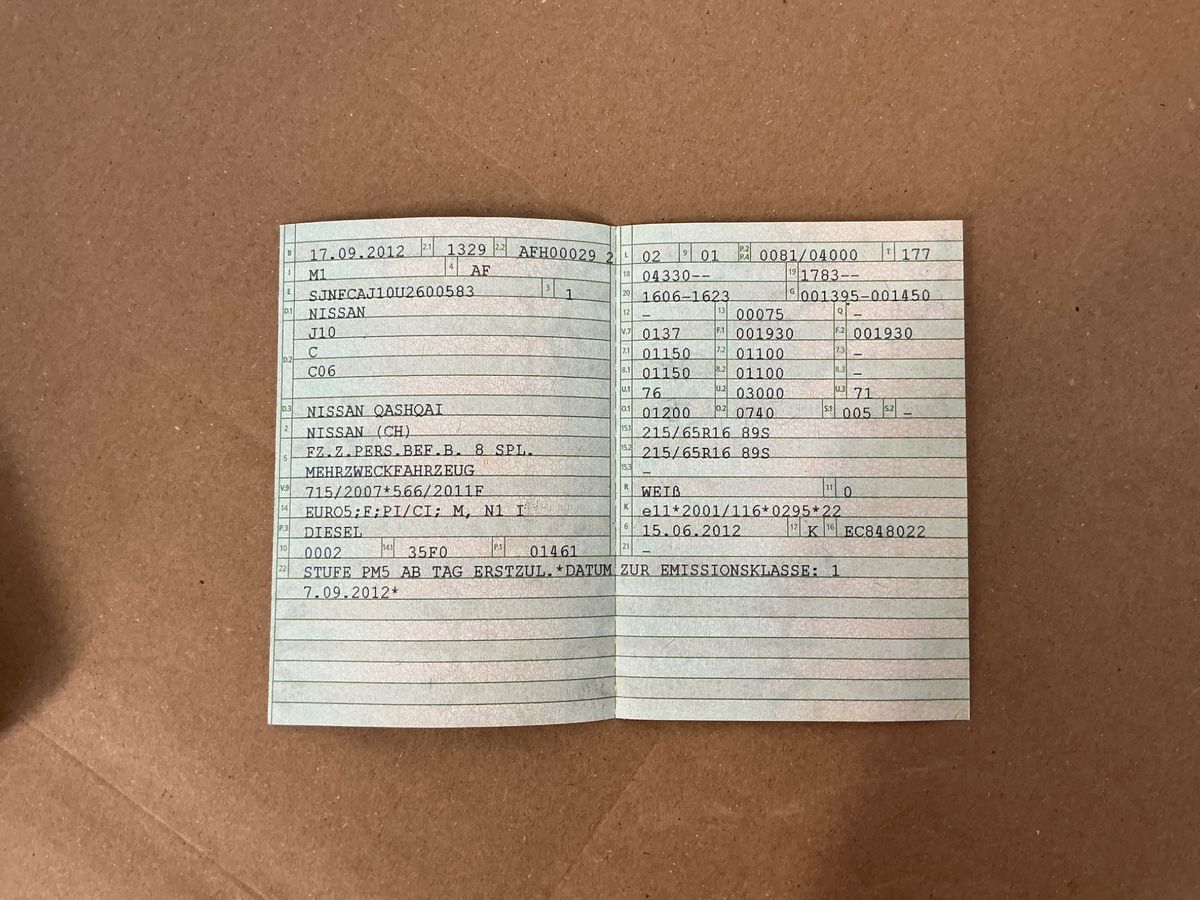 B 17.09.2012 2.1 1329 2.2 AFH00029 2
J M1 4 AF
E SJNFCAJ10U2600583 3 1
D.1 NISSAN
J10
D.2 C
C06
D.3 NISSAN QASHQAI
2 NISSAN (CH)
5 FZ.Z.PERS.BEF.B. 8 SPL.
MEHRZWECKFAHRZEUG
V.9 715/2007*566/2011F
14 EURO5;F;PI/CI; M, N1 I
P.3 DIESEL
10 0002 14.1 35F0 P.1 01461
L 02 9 01 P.2 P.4 0081/04000 T 177
18 04330-- 19 1783--
20 1606-1623 G 001395-001450
12 - 13 00075 Q -
V.7 0137 F.1 001930 F.2 001930
7.1 01150 7.2 01100 7.3 -
8.1 01150 8.2 01100 8.3 -
U.1 76 U.2 03000 U.3 71
O.1 01200 O.2 0740 S.1 005 S.2 -
15.1 215/65R16 89S
15.2 215/65R16 89S
15.3 -
R WEIß 11 0
K e11*2001/116*0295*22
6 15.06.2012 17 K 16 EC848022
21 -
22 STUFE PM5 AB TAG ERSTZUL.*DATUM ZUR EMISSIONSKLASSE: 1
7.09.2012*